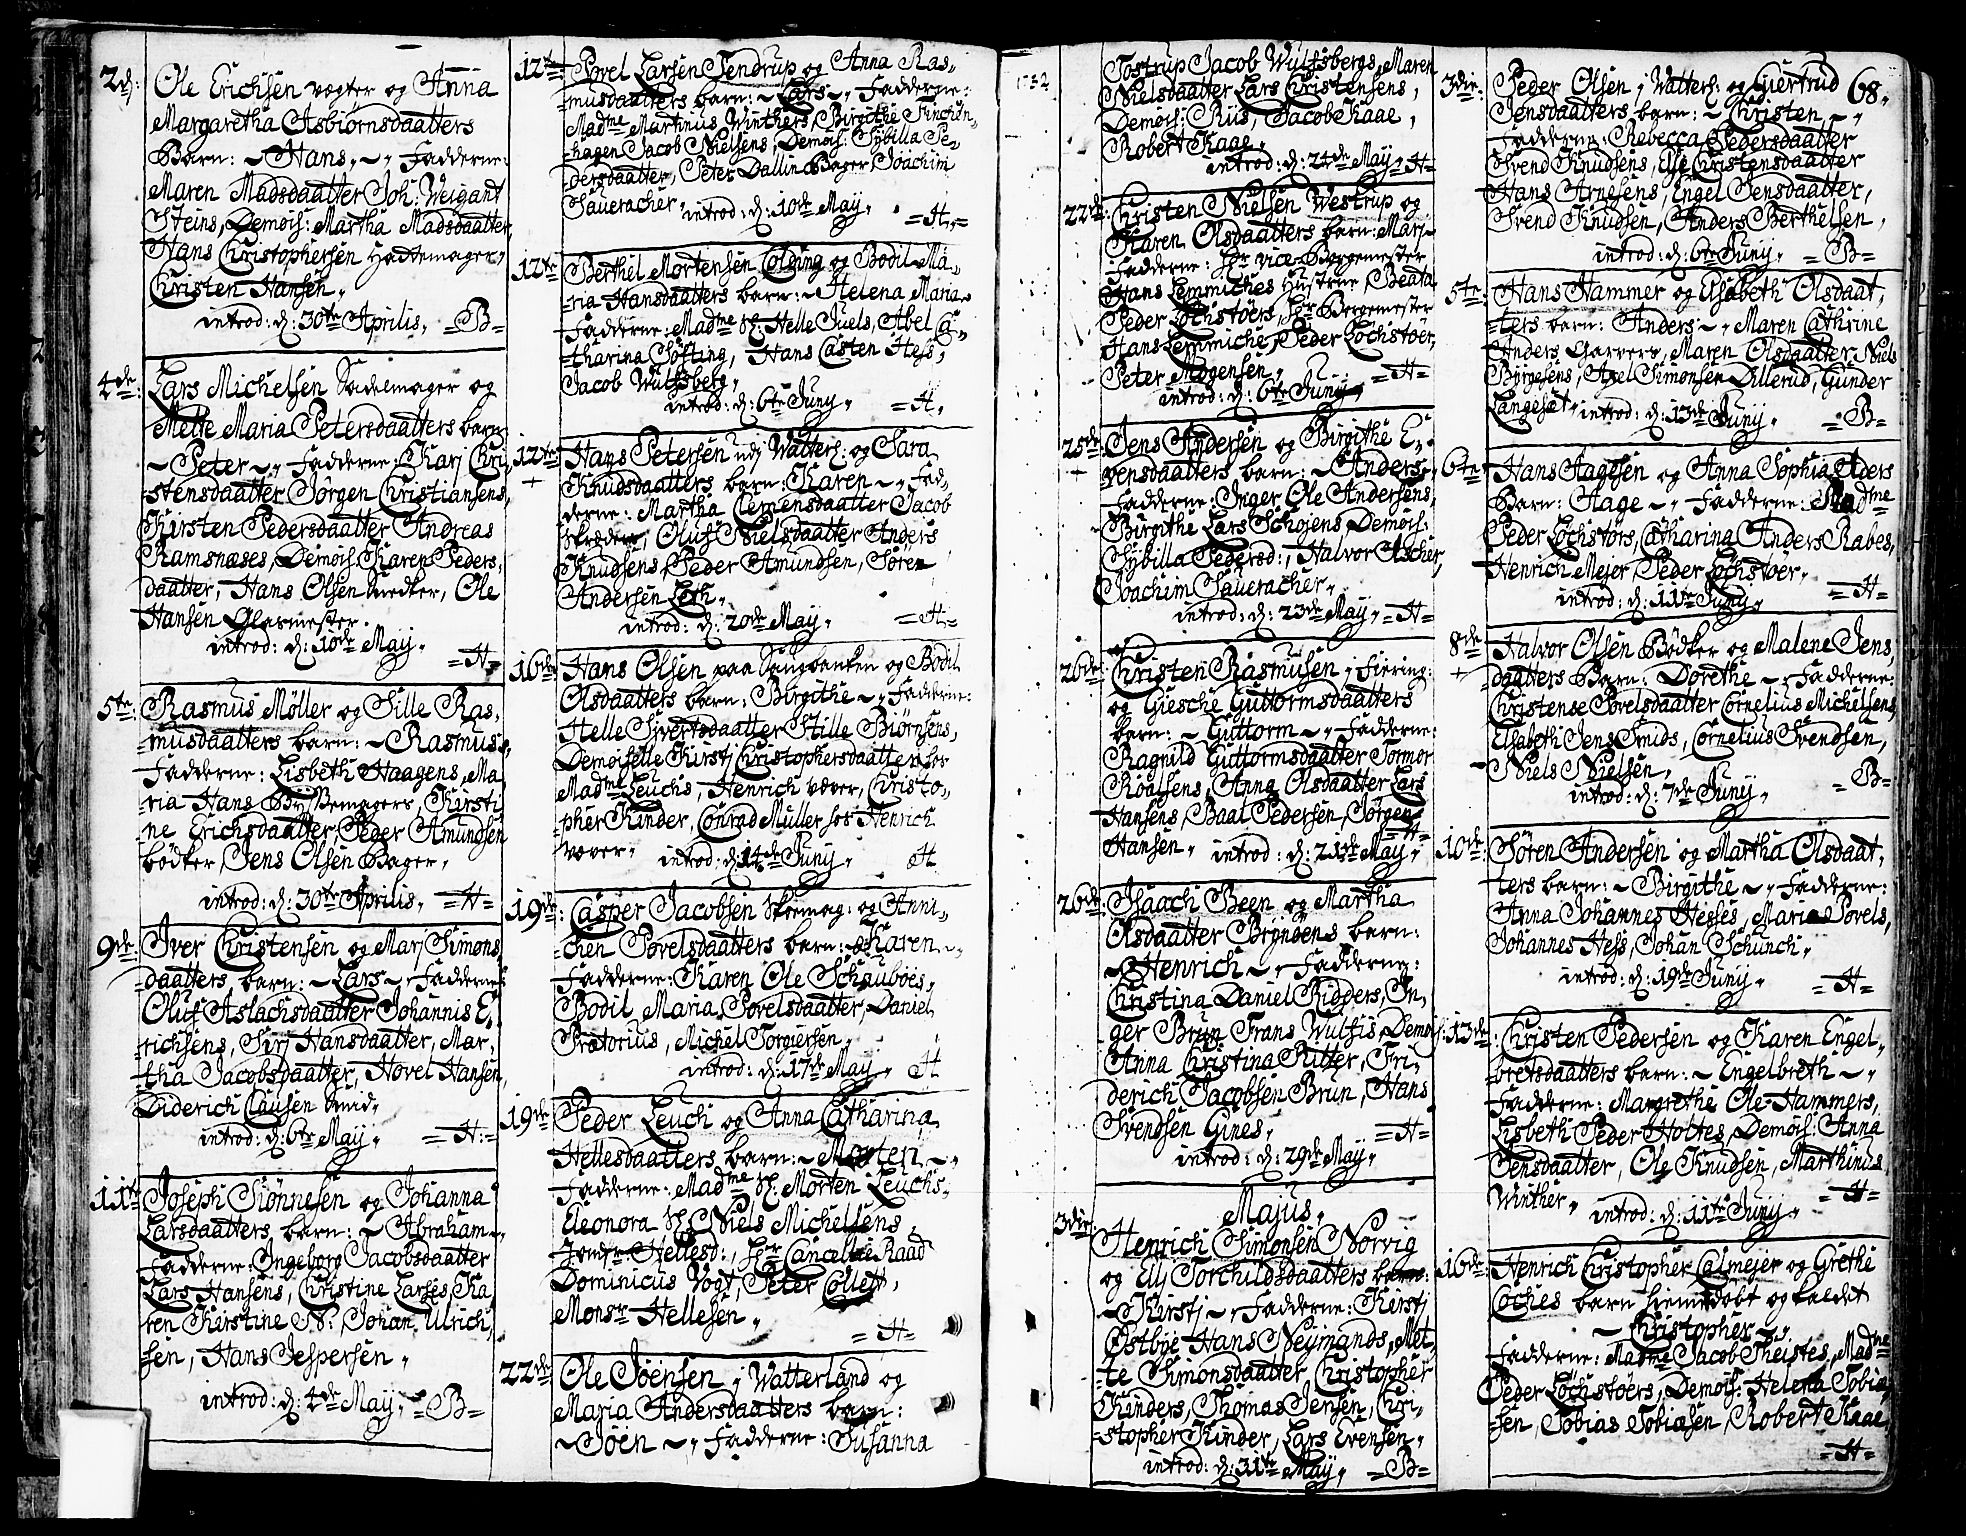 2d:
Ole Erichsen vægter og Anna
Margaretha Asbiørnsdaatters
Barn: ~ Hans, ~,, Fadderne:
Maren Madsdaatter Joh: Weigant
Steins, Demois: Martha Madsdaatter,
Hans Christophersen Hattemager,
Christen Hansen,
introd: d: 30te Aprilis, =B=
4de:
Lars Michelsen Sadelmager og
Mette Maria Petersdaatters barn
~ Peter ~,, Fadderne: Karj Chri,
=stensdaatter Jørgen Christiansens,
Kirsten Pedersdaatter Andreas
Ramsnæses, Demois. Karen Peders,
daatter, Hans Olsen Snedker, Ole
Hansen Glasmester.
introd: d: 10de May, =H=
5te:
Rasmus Møller og Sille Ras,
=musdaatters barn: ~ Rasmus ~,
Fadderne: Lisbeth Haagens, Ma
ria Hans Bÿssemagers, Kirsti
ne Erichsdaatter, Peder Amundsen
bødker, Jens Olsen Bager,
introd: d: 30te Aprilis, =H=
9de:
Iver Christensen og Marj Simons
daatters barn: ~ Lars ~, Fadderne:
Oluf Aslachsdaatter Johannis E,
richsens, Sirj Hansdaatter, Mar,
tha Jacobsdaatter, Hovel Hansen,
Diderich Clausen Smid,
introd: d: 6te May, =H=
11te
Joseph Siønnesen og Johanna
Larsdaatters barn: ~ Abraham ~,
Fadderne: Ingeborg Jacobsdaatter
Lars Hansens, Christine Larses, Ka
ren Kirstine N: Johan Ulrich,
sen, Hans Jespersen,
introd: d: 4de May, =B=
12te
Povel Larsen Jendrup og Anna Ras,
=musdaatters barn: ~ Lars ~,, Fadderne:
Madme Martinus Winthers, Birgithe Finchen,
hagen Jacob Nielsens, Demois: Sybilla Pe,
dersdaatter, Peter Dallin Bager, Joachim
Saueracher, introd: d: 10de May, =H,=
12te
Berthel Mortensen Colding og Bodil Ma,
ria Hansdaatters barn: ~ Helena Maria ~
Fadderne: Madme Sl: Helle Juels, Abel Ca,
tharina Søfting, Hans Casten Hess,
Jacob Wulfsberg,
introd: d: 6te Juny, =H,
12te
+
Hans Petersen udj Watterl: og Sara
Knudsdaatters barn: Karen ~,, Fad,
derne: Martha Clemensdaatter Jacob
Skreders, Oluf Nielsdaatter Anders
Knudsens, Peder Amundsen, Søren
Andersen Leth,
introd: d: 20de May, =H=
16de
Hans Olsen paa Sangbanken og Bodil
Olsdaatters barn: Birgithe ~,, Fadderne:
Helle Sivertsdaatter Stille Biørnsens,
Demoiselle Kirstj Christophersdaatter hos
Madme Leuchs, Henrich væver, Christo,
pher Kinder, Conrad Müller hos Henrich
Væver, introd: d: 14de Juny, H
19de:
Casper Jacobsen Skoemag: og Anni,
chen Povelsdaatters barn: ~ Karen ~,,
Fadderne: Karen Ole Schauboes,
Bodil Maria Povelsdaatter, Daniel
Prætorius, Michel Torgiersen,
introd: d: 17de May, H
19de
Peder Leuch og Anna Catharina
Hellesdaatters barn: ~ Morten ~,,
Fadderne: Madme Sl: Morten Leuchs,
Eleonora Sl: Niels Michelsens,
Jomfr Hellesd:, Hr Cancellie Raad
Dominicus Vogt, Peter Collett,
Monsr Hellesen,
=H=
22de
Ole Jöensen j Watterland og
Maria Andersdaatters barn:
~ Jöen ~,, Fadderne: Susanna
1732
Tostrup Jacob Wulfsbergs, Maren
Nielsdaatter Lars Christensens,
Demois: Riis, Jacob Kaae,
Robert Kaae,
introd: d: 24de May, =H=
22de:
Christen Nielsen Westrup og
Karen Olsdaatters barn: Marj ~
Fadderne: Hr vice Borgemester
Hans Lemmiches Hustrue, Beata
Peder Lochstøers, Hr Borgemester
Hans Lemmiche, Peder Lochstøer,
Peter Mogensen, =H=
introd: d: 6te Juny,
25de:
+
Jens Andersen og Birgithe E,
vensdaatters barn: ~ Anders ~,
Fadderne: Inger Ole Andersens,
Birgithe Lars Schojens, Demois:
Sybilla Pedersd:, Halvor Ascher,
Joachim Saueracher,
introd: d: 23de May, =H=
26de:
Christen Rasmusen j Fiering:
og Giesche Guttormsdaatters
barn: ~ Guttorm ~,, Fadderne:
Ragnild Guttormsdaatter Tormor
Roalsens, Anna Olsdaatter Lars
Hansens, Baal Pedersen, Jørgen
Hansen, introd: d: 21de May, =H=
26de:
Isaach Been og Martha
Olsdaatter Bryndens barn:
~ Henrich ~,, Fadderne:
Christina Daniel Ridders, In,
ger Brun Frans Wulfis, Demois:
Anna Christina Ritter, Fri,
derich Jacobsen Brun, Hans
Svendsen Gines, =H=
introd: d: 29de May,
Majus,
3die:
Henrich Simonsen Norvig
og Ellj Torchildsdaatters barn:
~ Kirstj ~,, Fadderne: Kirstj
Østbye Hans Neymands, Met,
te Simonsdaatter, Christopher
Kinders, Thomas Jensen, Chri,
stopher Kinder, Lars Evensen,
introd: d: 31te May, =B=
3die:
68.
Peder Olsen j Watterl: og Giertrud
Jensdaatters barn: ~ Christen ~,,
Fadderne: Rebecca Pedersdaatter
Svend Knudsens, Else Christensdaatter
Hans Arnesens, Engel Jensdaatter,
Svend Knudsen, Anders Berthelsen,
introd: d: 6te Juny, =B=
5te:
Hans Hammer og Elsabeth Olsdaat,
ters barn: Anders ~,, Maren Cathrine
Anders Garvers, Maren Olsdaatter Niels
Børgesens, Axel Simonsen Dillerud, Gunder
Langeset, introd: d: 13de Juny, =B=
6te
Hans Aagesen og Anna Sophia Elders
Barn: Aage ~,, Fadderne: Madme
Peder Lochstørs, Catharina Anders Rabes,
Henrich Mejer, Peder Lochstøer,
introd: d: 11te Juny, =H=
8de
+
Halvor Olsen Bødker og Malene Jens,
daatters Barn: Dorethe ~,, Fadderne:
Christense Povelsdaatter Cornelius Michelsens,
Elsabeth Jens Smids, Cornelius Svendsen,
Niels Nielsen,
introd: d: 7de Juny, =B=
10de:
Søren Andersen og Martha Olsdaat,
ters barn: ~ Birgithe ~,, Fadderne:
Anna Johannes Hesses, Maria Povels,
Johannes Hess, Johan Schunch,
introd: d: 19de Juny, =H=
13de:
Christen Pedersen og Karen Engel,
bretsdaatters barn: ~ Engelbreth ~,,
Fadderne: Margrethe Ole Hammers,
Lisbeth Peder Holtes, Demois: Anna
Jensdaatter, Ole Knudsen, Marthinus
Winther, introd: d: 11te Juny, =H=
16de:
Henrich Christopher Calmejer og Grethe
Coches barn hiemedøbt og kaldet
~ Christopher ~,,
Fadderne: Madme Jacob Theistes, Madme
Peder Lochstøers, Demois: Helena Tobia,
sen, Tobias Tobiæsen, Robert Kaae,
=H=